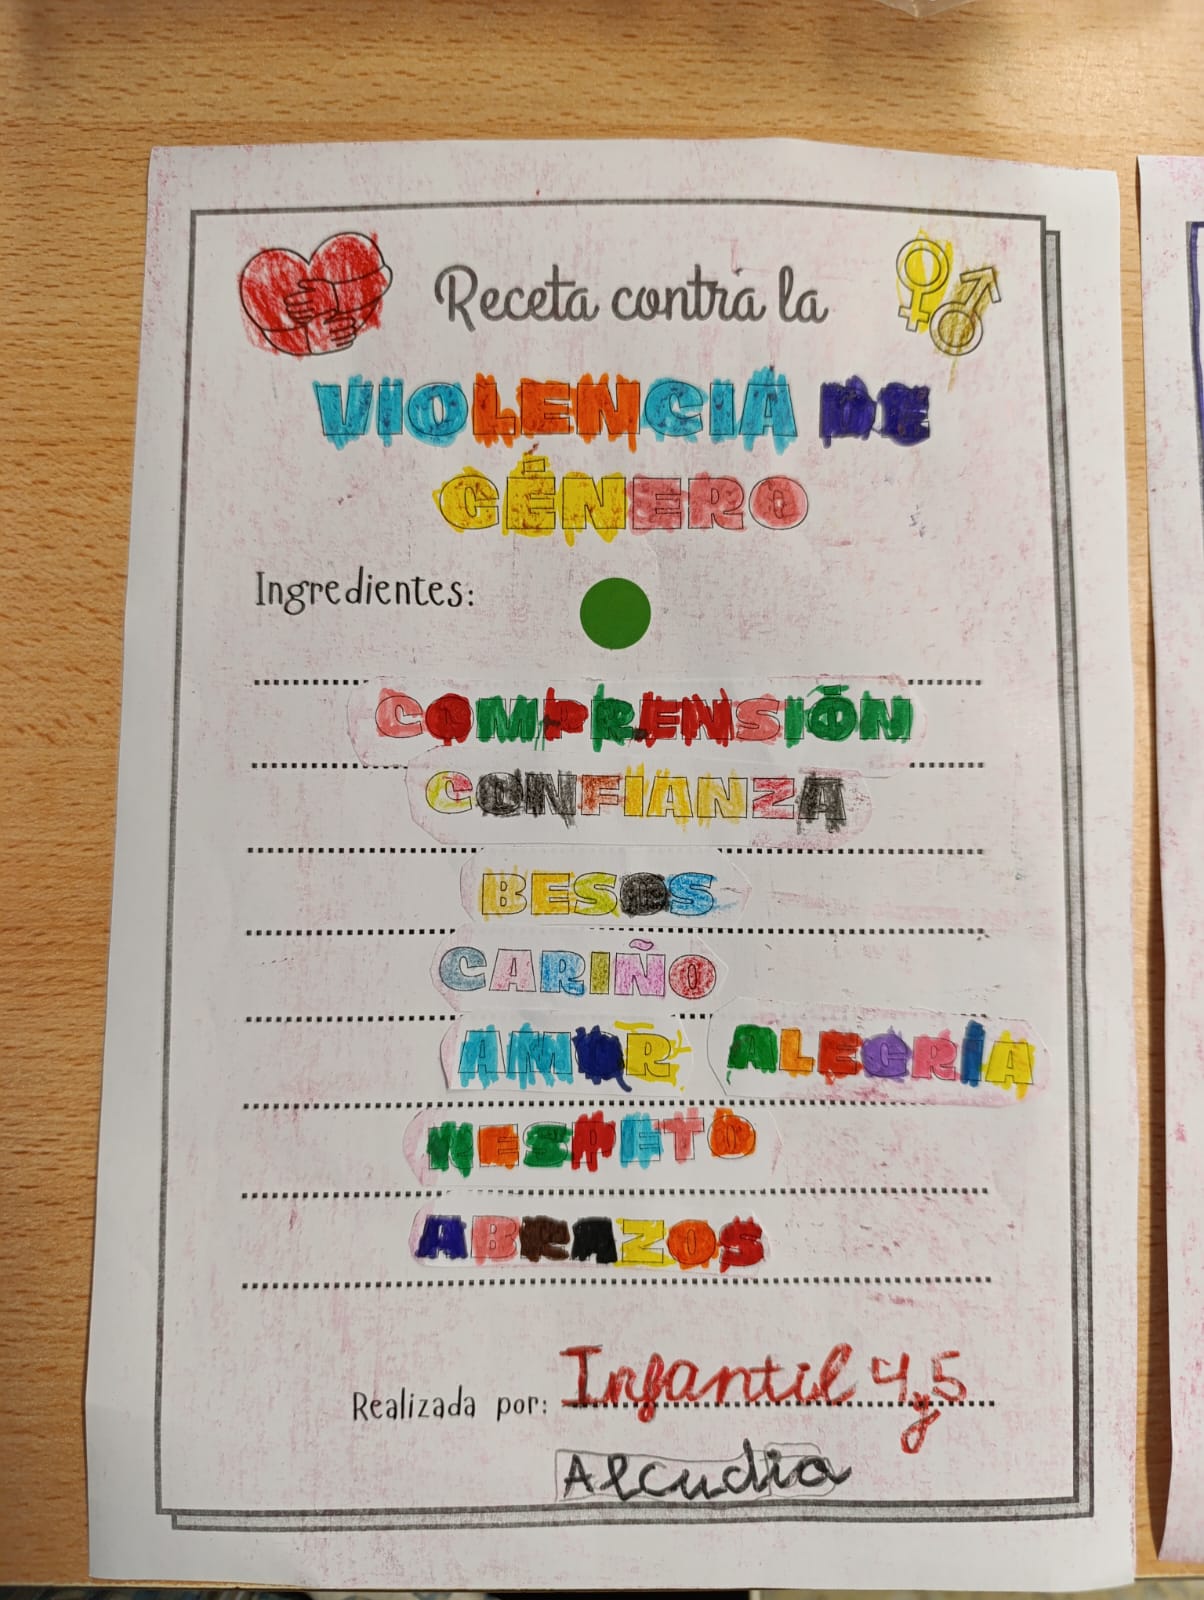 Receta contra la
VIOLENCIA DE
GÉNERO
Ingredientes:
COMPRENSIÓN
CONFIANZA
BESOS
CARIÑO
AMOR ALEGRÍA
RESPETO
ABRAZOS
Realizada por: Infantil 4 y 5
Alcudia